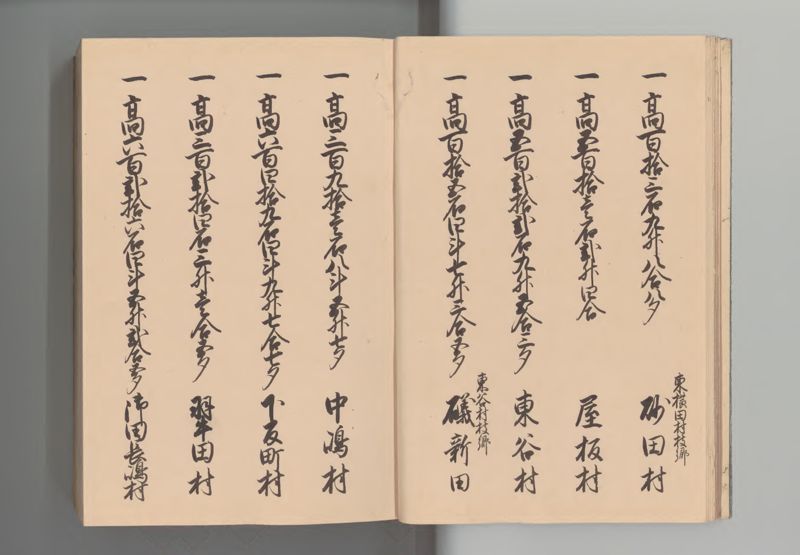 一 高百拾三石九升八合八夕
東横田村枝郷
砂田村
一 高五百拾壱石弐升四合
屋板村
一 高五百弐拾弐石九升五合三夕
東谷村
一 高百拾五石四斗七升三合五夕
東谷村枝郷
礒新田
一 高三百九拾壱石八斗五升七夕
中嶋村
一 高六百四拾九石四斗九升七合七夕
下反町村
一 高三百弐拾四石三升壱合五夕
羽牛田村
一 高六百弐拾六石四斗五升弐合五夕
御田長嶋村